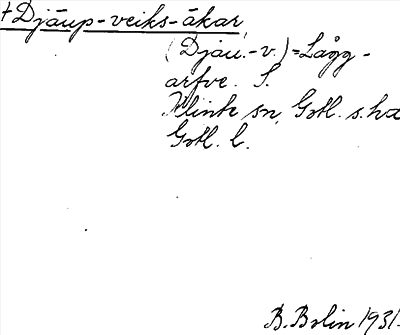 +Djäup-veiks-åkar,
(Djäu.-v.)=Lågg-
arfve. S.
Klinte sn, Gotl. s. hd
Gotl. l.
B. Bolin 1931.